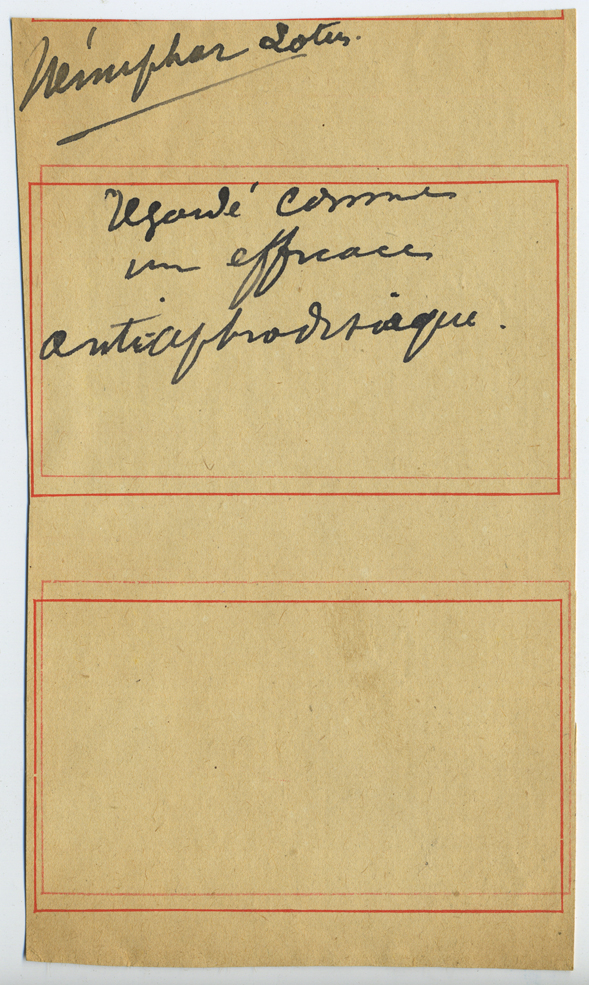 Nénuphar Lotus.
regardé comme
un efficace
antiaphrodisiaque.